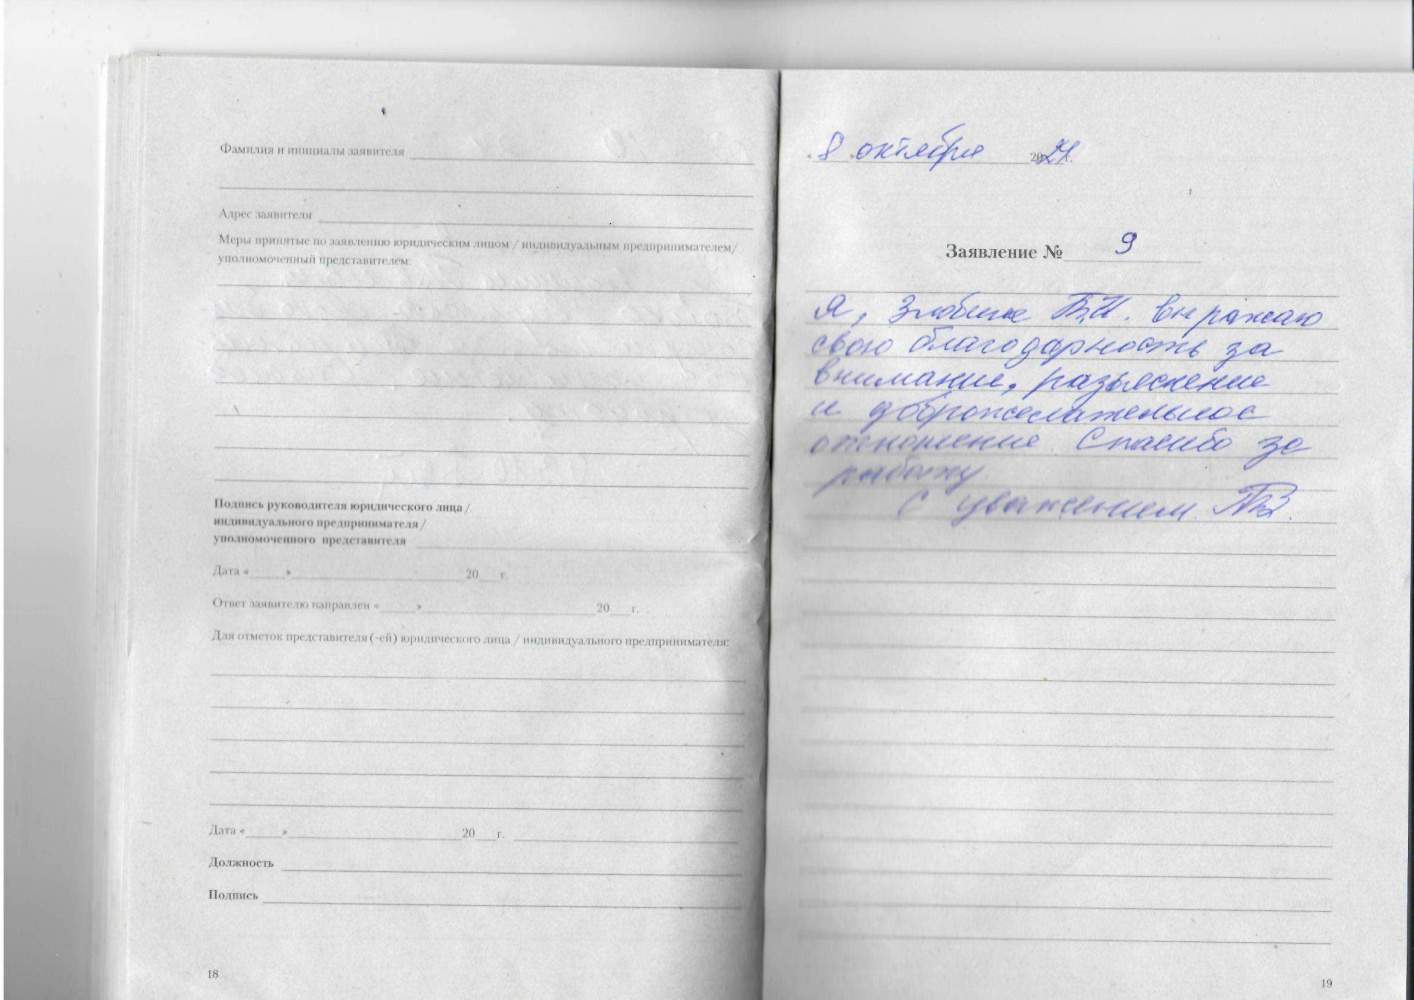 Фамилия и инициалы заявителя
Адрес заявителя
Меры принятые по заявлению юридическим лицом / индивидуальным предпринимателем/
уполномоченный представителем:
Подпись руководителя юридического лица /
индивидуального предпринимателя /
уполномоченного представителя
Дата « » 20 г.
Ответ заявителю направлен « » 20 г.
Для отметок представителя (-ей) юридического лица / индивидуального предпринимателя:
Дата « » 20 г.
Должность
Подпись
18
8 октября 2021 г.
Заявление № 9
Я, выражаю
свою благодарность за
внимание, разъяснение
и доброжелательное
отношение. Спасибо за
работу.
С уважением
19